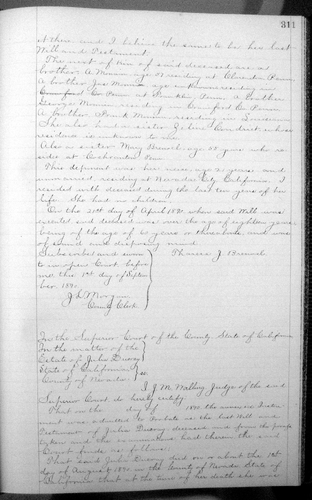 311
it there and I believe the same to be her last
Will and Testament.
The next of kin of said deceased are as
brother A. Moran age residing at
A brother Jas Moran age unknown residing in
Crawford Co. Penn at A brother
George Moran residing in Crawford Co. Penn
A brother Frank Moran residing in
She also had a sister whose
residence is unknown to me
Also a sister Mary age 50 years who re-
sides at Penn
This deponent was her niece, am years and
unmarried residing at Nevada City California. I
resided with deceased during the last ten years of her
life. She had no children.
On the 20th day of April 1891 when said Will was
executed and deceased was over the age of eighteen years
being of the age of 60 years or thereabouts and was
of sound and disposing mind
Subscribed and sworn
to in open Court before
me this 1st day of Septem
ber 1891.
J L Morgan
County Clerk
Theresa J.
In the Superior Court of the County State of California
In the matter of the
Estate of Julia Durey
State of California
County of Nevada } ss.
I J M Walling Judge of the said
Superior Court do hereby certify.
That on the day of 1891 the annexed Instru
ment was admitted to Probate as the last Will and
Testament of Julia Durey deceased and from the proofs
taken and the examination had therein the said
Court finds as follows.
That said Julia Durey died on or about the 1st
day of August 1891 in the County of Nevada State of
California that at the time of her death she was